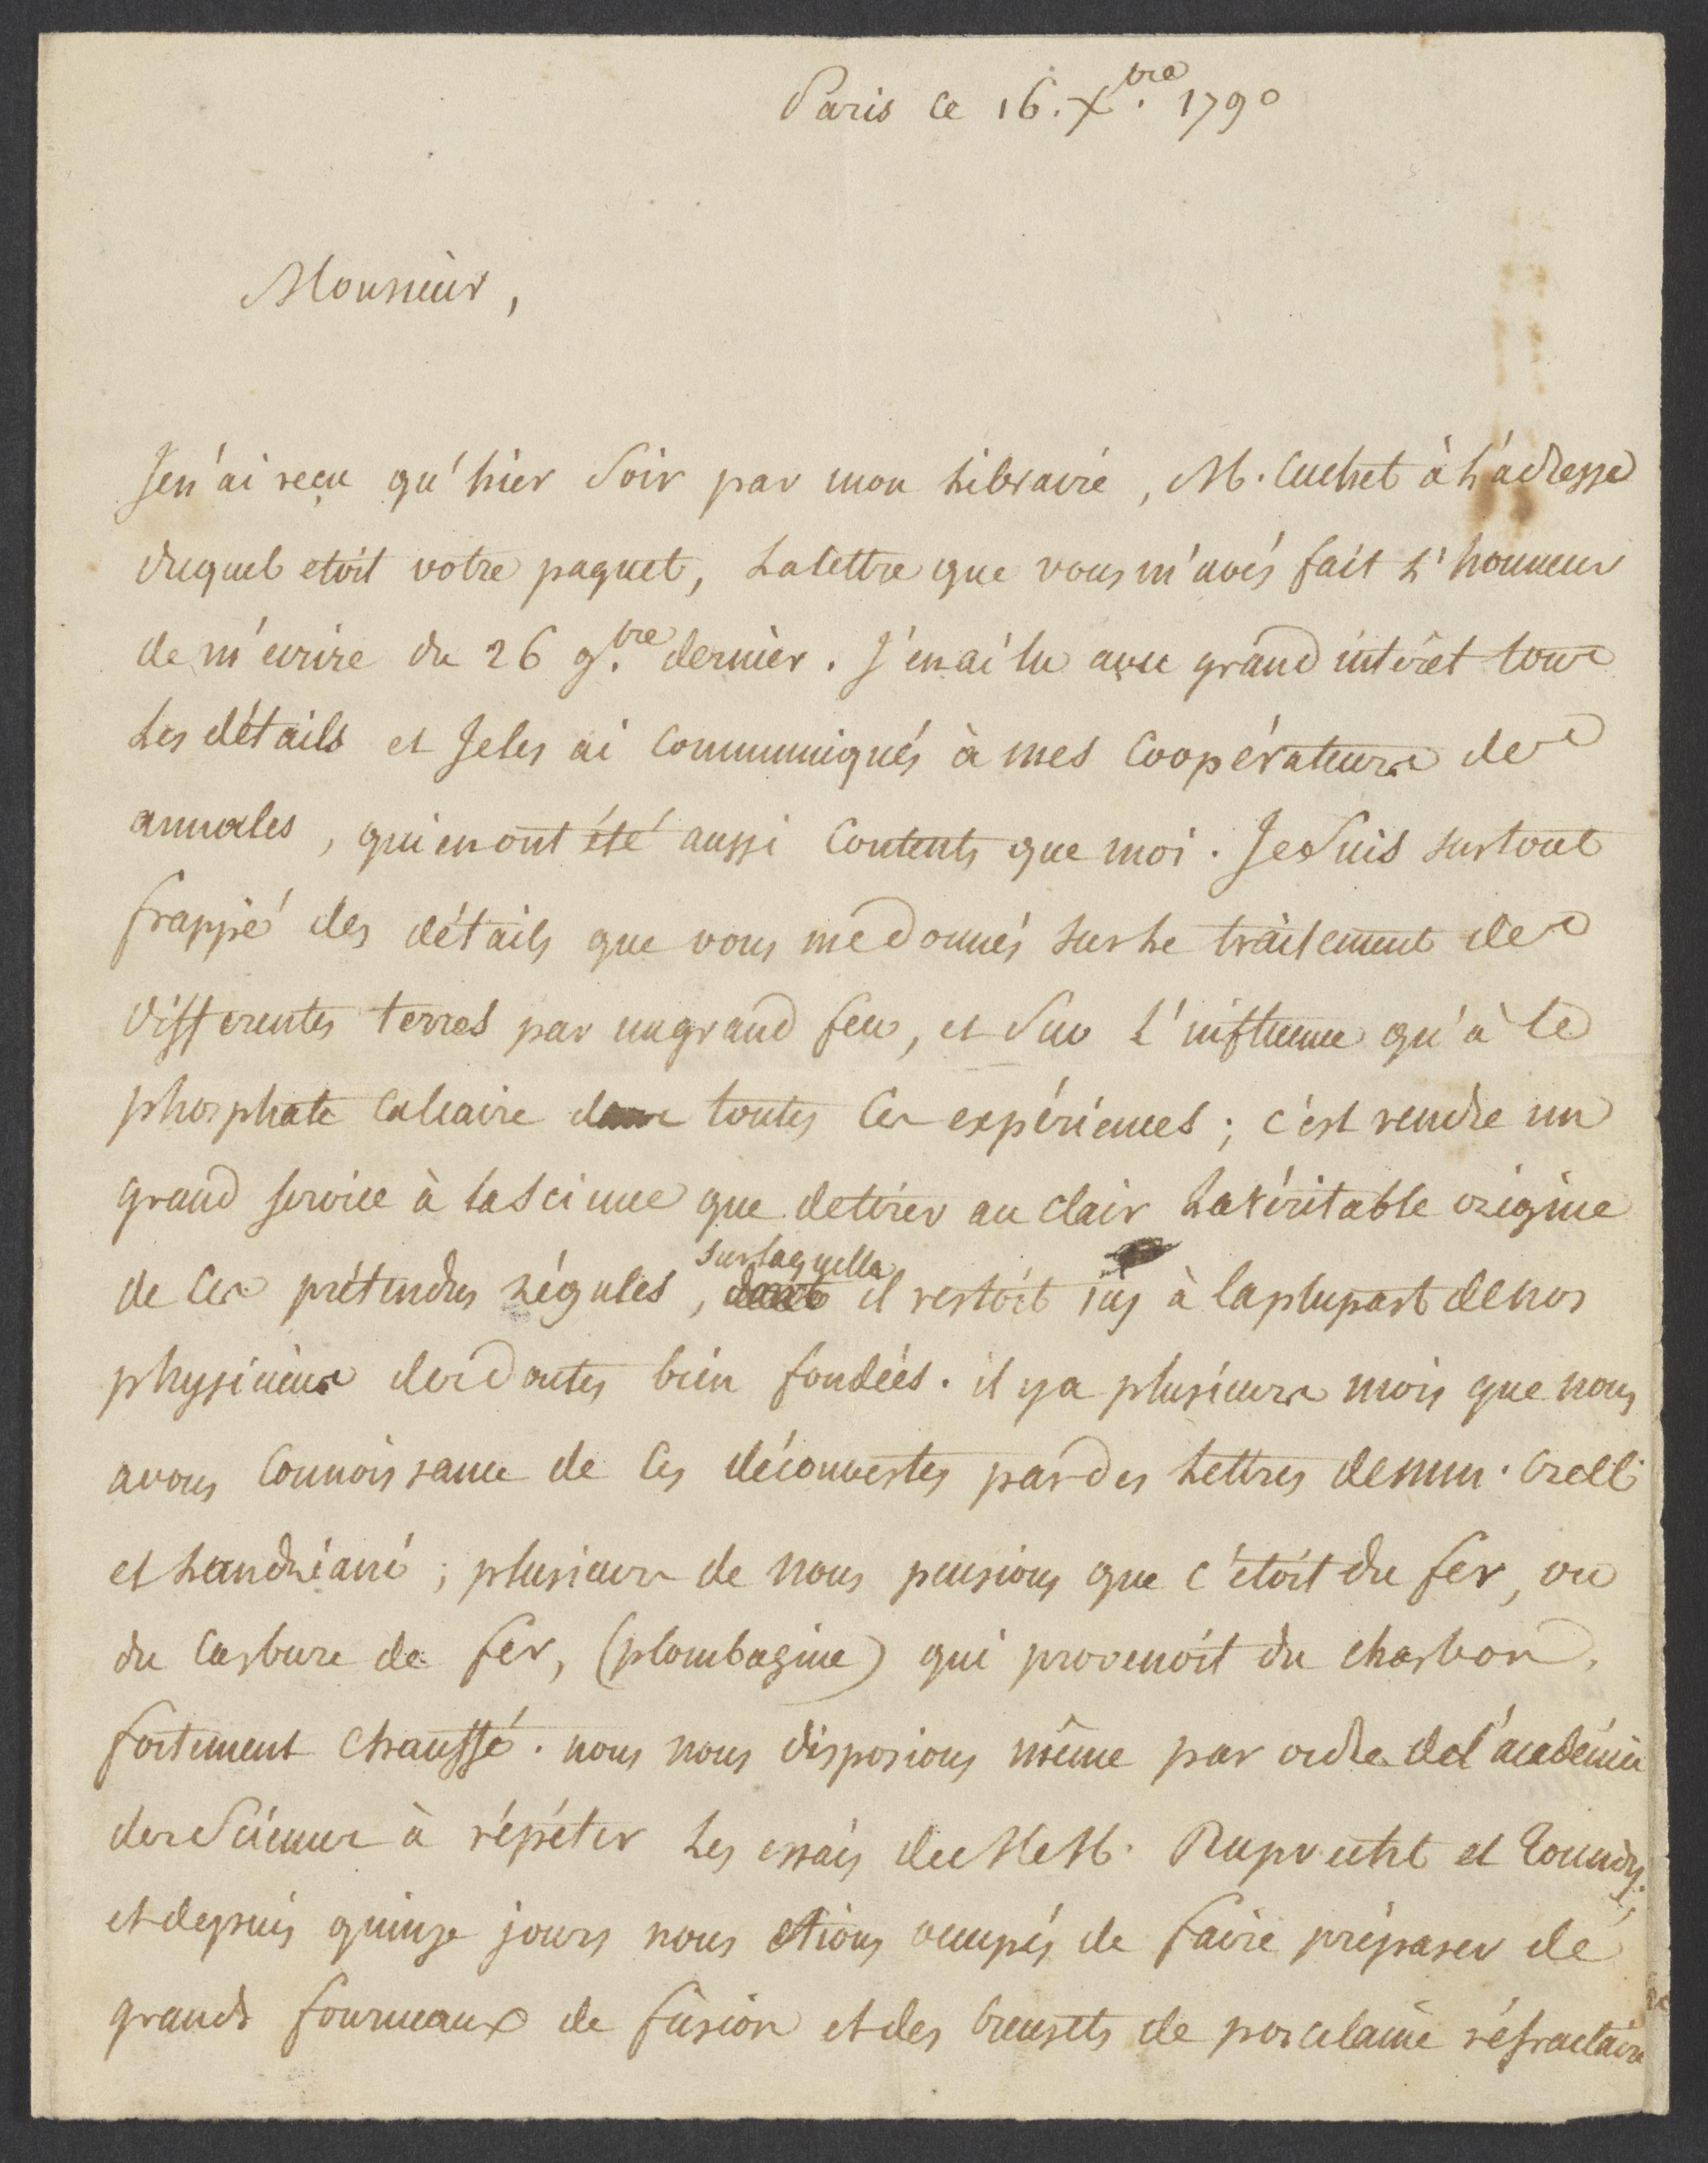 Paris ce 16. Xbre. 1790
Monsieur,
Je n'ai reçu qu'hier soir par mon libraire, M. Cuchet à l'adresse
duquel etoit votre paquet, la lettre que vous m'avés fait l'honneur
de m'ecrire du 26 9.bre dernier. J'en ai lu avec grand intérêt tous
les détails et je les ai communiqués à mes coopérateurs des
annales, qui en ont été aussi contents que moi. Je suis surtout
frappé des détails que vous me donnés sur le traitement des
differentes terres par un grand feu, et sur l'influence qu'à le
phosphate calcaire dans toutes ces expériences; c'est rendre un
grand service à la science que de tirer au clair la véritable origine
de ces prétendus régules, sur laquelle il restoit ici à la plupart de nos
physiciens des doutes bien fondées. il y a plusieurs mois que nous
avons connoissance de ces découvertes par des lettres de mm. Crell
et Landriani; plusieurs de nous pensions que c'étoit du fer, ou
du carbure de fer, (plombagine) qui provenoit du charbon
fortement chauffé. nous nous disposions même par ordre de l'académie
des sciences à répéter les essais de MM. Ruprecht et Tondy.
et depuis quinze jours nous etions occupés de faire préparer de
grands fourneaux de fusion et des creusets de porcelaine réfractaire